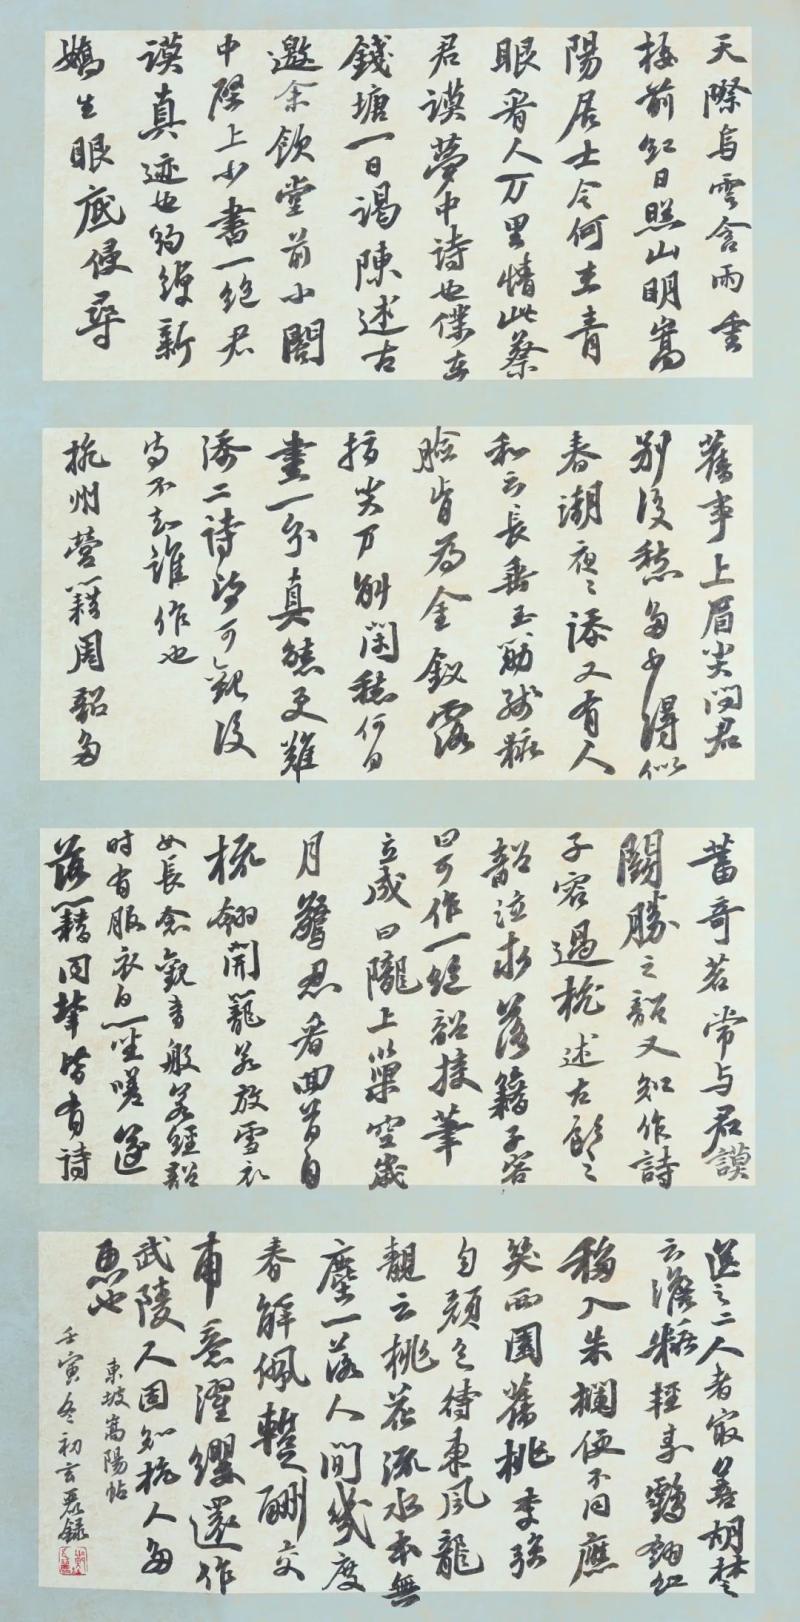 天際烏雲含雨重
樓前紅日照山明嵩
陽居士今何在青
眼看人万里情此蔡
君謨夢中詩也僕在
錢塘一日謁陳述古
邀余飲堂前小閣
中壁上小書一絕君
謨真迹也約綽新
嬌生眼底侵尋
舊事上眉尖問君
別後愁多少得似
春潮夜々添又有人
和云長垂玉筯殘粧
臉肯為金釵露
指尖万斛閑愁何日
盡一分真態更難
添二詩皆可觀後
詩不知誰作也
杭州營籍周韶多
蓄奇茗常与君謨
鬪勝之韶又知作詩
子容過杭述古飲之
韶泣求落籍子容
曰可作一絕韶援筆
立成曰隴上巢空歲
月驚忍看回首自
梳翎開籠若放雪衣
女長念觀音般若經韶
時有服衣白一坐嗟遂
落籍同輩皆有詩
送之二人者最善胡楚
云淡粧輕素鶴翎紅
移入朱欄便不同應
笑西園舊桃李強
勻顏色待東風龍
靚云桃花流水本無
塵一落人間幾度
春解佩暫酬交
甫意濯纓還作
武陵人固知杭人多
惠也
東坡嵩陽帖
壬寅冬初玄錄